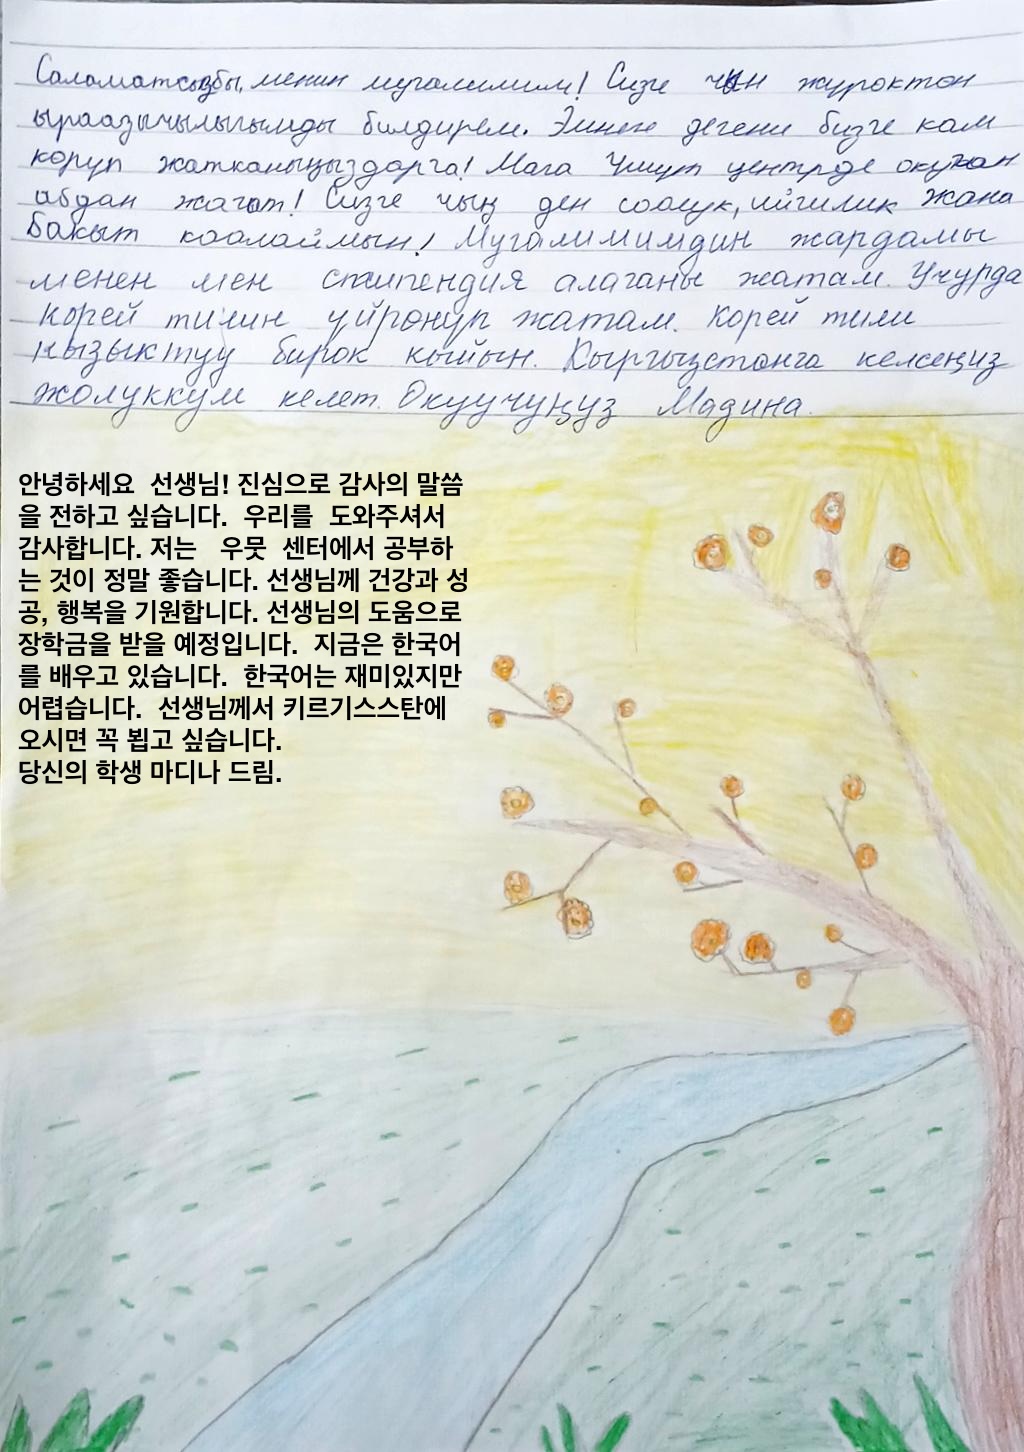 Саламатсызбы, менин мугалимим! Сизге чын журоктон
ыраазычылыгымды билдирем. Эмнеге дегени бизге кам
коруп жатканыңыздарга! Мага Үмүт центрде окуган
абдан жагат! Сизге чың ден соолук, ийгилик жана
бакыт каалаймын! Мугалимимдин жардамы
менен мен стипендия алаганы жатам. Учурда
корей тилин үйрөнүп жатам. Корей тили
кызыктуу бирок кыйын. Кыргызстанга келсеңиз
жолуккум келет. Окуучуңуз Мадина.
안녕하세요 선생님! 진심으로 감사의 말씀
을 전하고 싶습니다. 우리를 도와주셔서
감사합니다. 저는 우뭇 센터에서 공부하
는 것이 정말 좋습니다. 선생님께 건강과 성
공, 행복을 기원합니다. 선생님의 도움으로
장학금을 받을 예정입니다. 지금은 한국어
를 배우고 있습니다. 한국어는 재미있지만
어렵습니다. 선생님께서 키르기스스탄에
오시면 꼭 뵙고 싶습니다.
당신의 학생 마디나 드림.